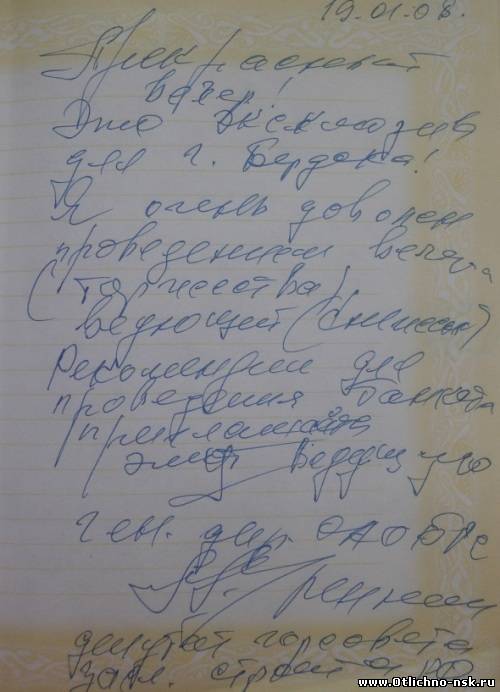 19.01.08.
Прекрасный
вечер!
Это эксклюзив
для г. Бердска!
Я очень доволен
проведением вечера
(торжества)
ведующей
Рекомендуем для
проведения банкета
Ведущую
ген. дир. ОАО
депутат горсовета
www.Otlichno-nsk.ru